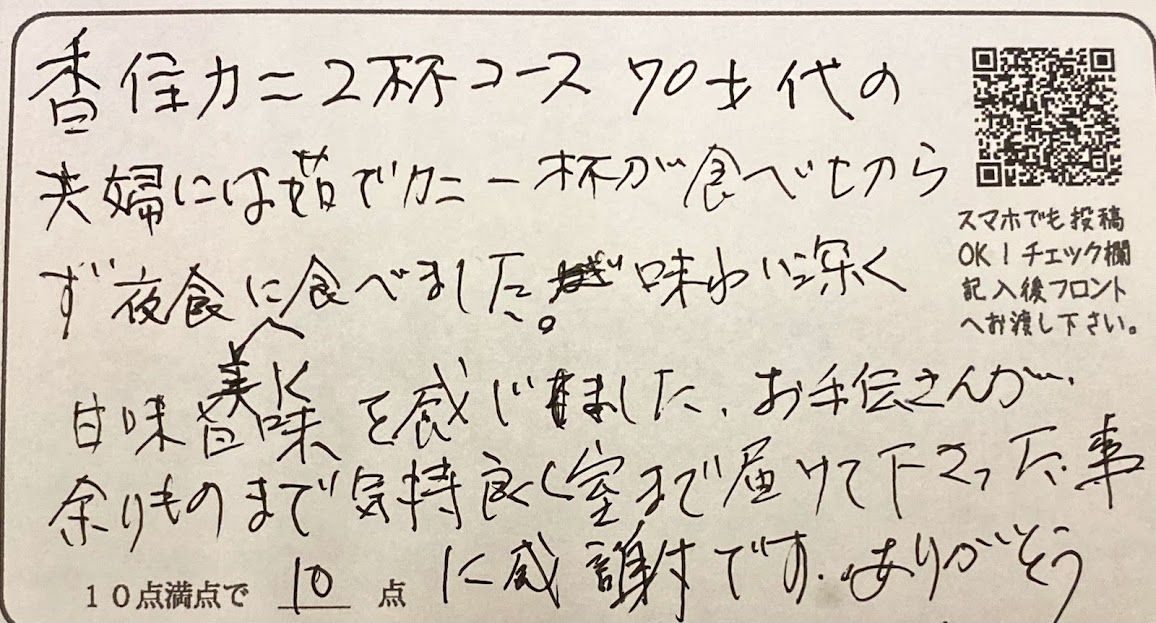 香住カニ2杯コース 70才代の
夫婦には茹でカニ一杯が食べせから
ず夜食に食べました。味わい深く
美に
甘味旨味を感じました、お手伝さんが、
余りものまで気持良く室まで届けて下さった事
に感謝です。ありがとう
スマホでも投稿
OK!チェック欄
記入後フロント
へお渡し下さい。
10点満点で 10 点